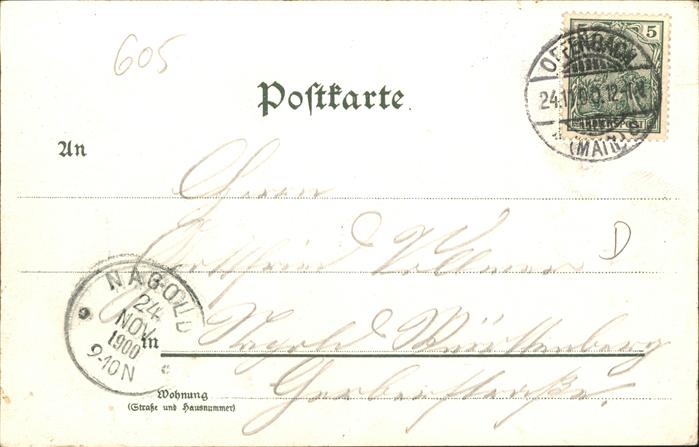 605
5
OFFENBACH
24.11.00.12-1N
(MAIN)
Postkarte
An
Herrn
Gottfried Vollmer
D
NAGOLD
24
NOV.
1900
9-10N
in
Nagold Württemberg
Wohnung
(Straße und Hausnummer)
Gerberstraße.